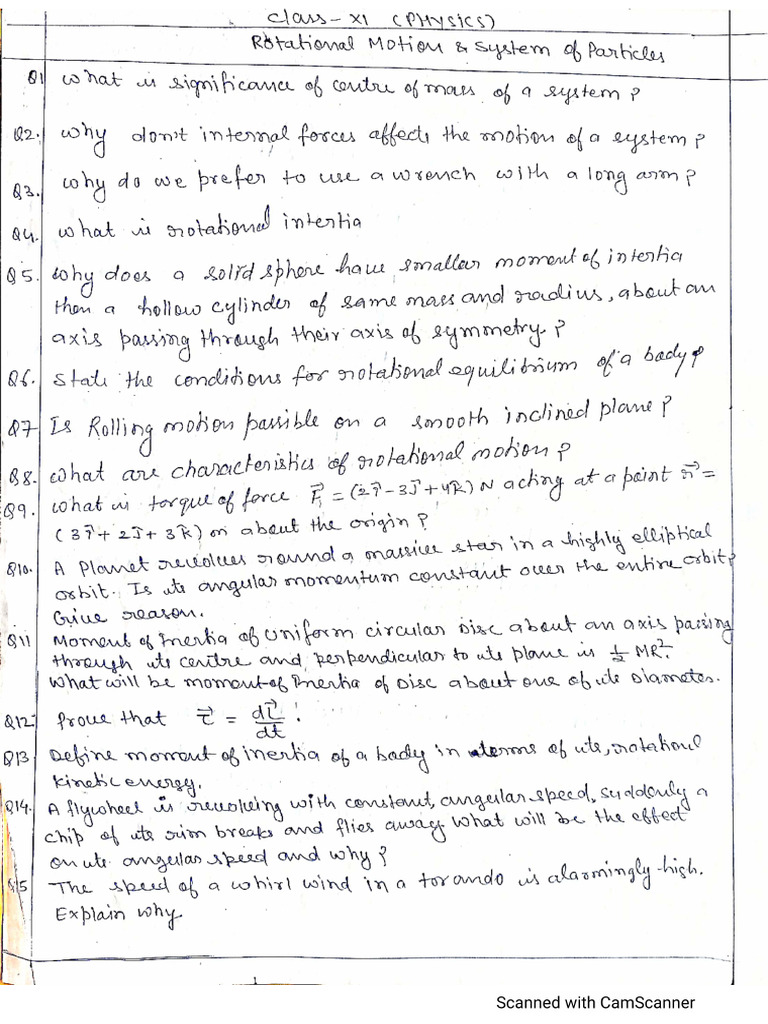 Class - XI (PHYSICS)
Rotational Motion & System of Particles
Q1 What is significance of centre of mass of a system?
Q2. Why don't internal forces affects the motion of a system?
Q3. Why do we prefer to use a wrench with a long arm?
Q4. What is rotational intertia
Q5. Why does a solid sphere have smaller moment of intertia
then a hollow cylinder of same mass and radius, about an
axis passing through their axis of symmetry.?
Q6. State the conditions for rotational equilibrium of a body?
Q7 Is Rolling motion possible on a smooth inclined plane?
Q8. What are characteristics of rotational motion?
Q9. What is torque of force F⃗ = (2î - 3ĵ + 4k̂) N acting at a point r⃗ =
(3î + 2ĵ + 3k̂) m about the origin?
Q10. A Planet revolves round a massive star in a highly elliptical
orbit. Is its angular momentum constant over the entire orbit?
Give reason.
Q11 Moment of Inertia of Uniform circular Disc about an axis passing
through its centre and perpendicular to its plane is ½ MR².
What will be moment of Inertia of Disc about one of its Diameter.
Q12 Prove that τ⃗ = dL⃗/dt !
Q13 Define moment of inertia of a body in terms of its, rotational
kinetic energy.
Q14. A flywheel is revolving with constant, angular speed, suddenly a
chip of its rim breaks and flies away. What will be the effect
on its angular speed and why?
Q15 The speed of a whirl wind in a torando is alarmingly high.
Explain why.
Scanned with CamScanner